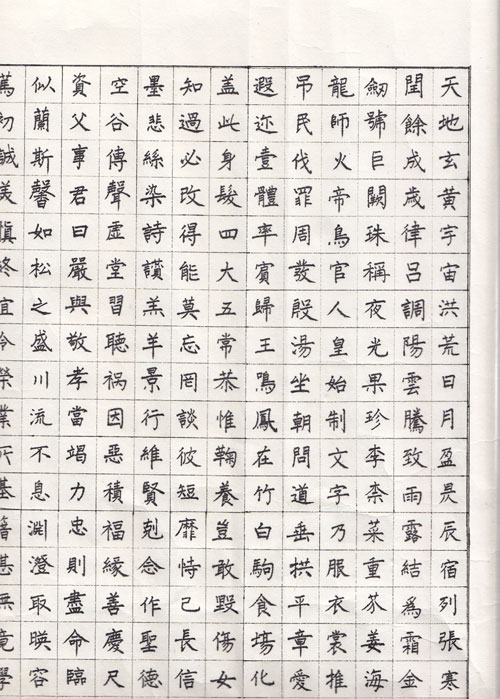 天地玄黃宇宙洪荒日月盈昃辰宿列張寒
閏餘成歲律呂調陽雲騰致雨露結爲霜金
劒號巨闕珠稱夜光果珍李柰菜重芥姜海
龍師火帝鳥官人皇始制文字乃服衣裳推
吊民伐罪周發殷湯坐朝問道垂拱平章愛
遐迩壹體率賓歸王鳴鳳在竹白駒食場化
盖此身髮四大五常恭惟鞠養豈敢毀傷女
知過必改得能莫忘罔談彼短靡恃己長信
墨悲絲染詩讃羔羊景行維賢剋念作聖德
空谷傳聲虛堂習聽禍因惡積福緣善慶尺
資父事君曰嚴與敬孝當竭力忠則盡命臨
似蘭斯馨如松之盛川流不息淵澄取暎容
篤初誠美慎終宜令榮業所基籍甚無竟學